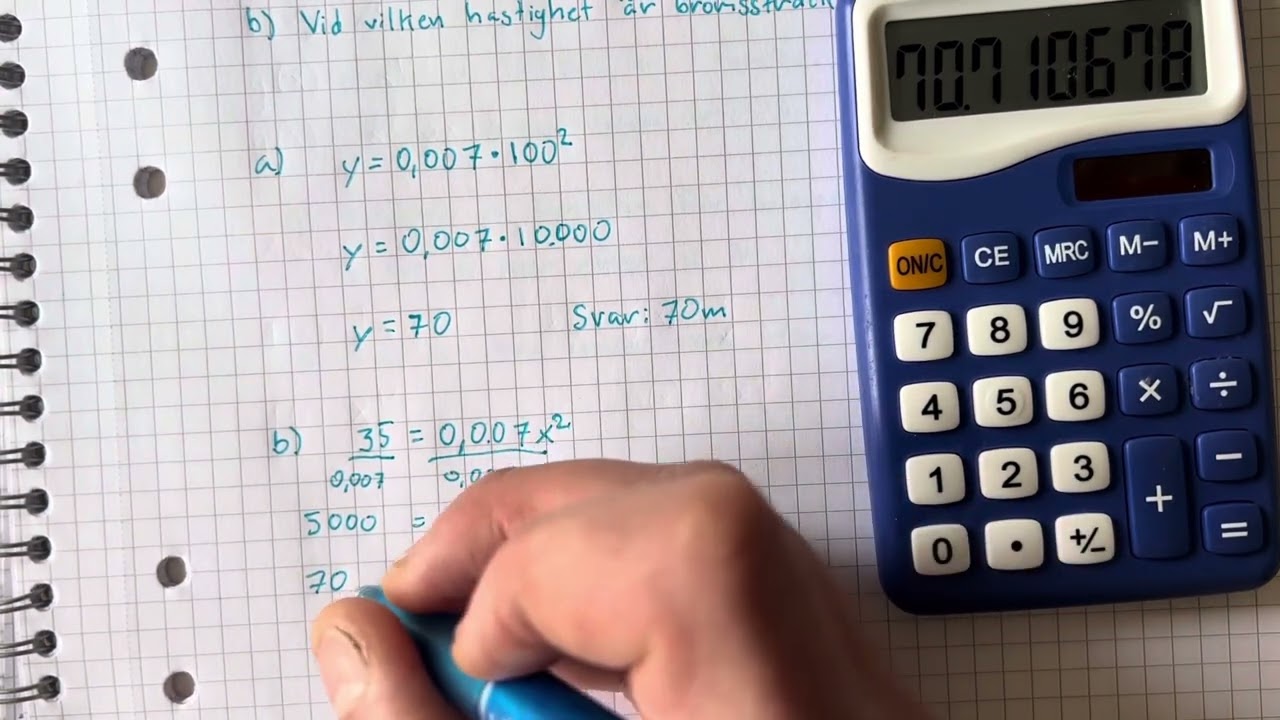 b) Vid vilken hastighet är bromssträck
a) y = 0,007 · 100²
y = 0,007 · 10.000
y = 70 Svar: 70m
b) 35 = 0,007x²
0,007 0,0
5000 =
70
70.710678
ON/C CE MRC M− M+
7 8 9 % √
4 5 6 × ÷
1 2 3 + −
0 • +/− =